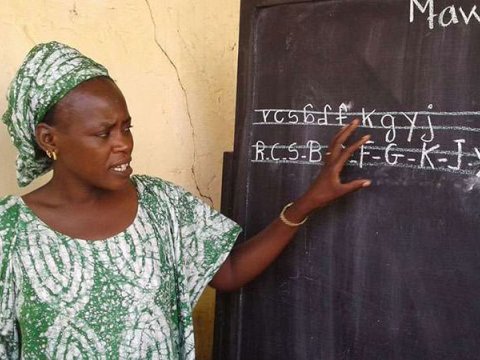 Maw
r c s b d f k g y j
R-C-S-B- -F-G-K-J y